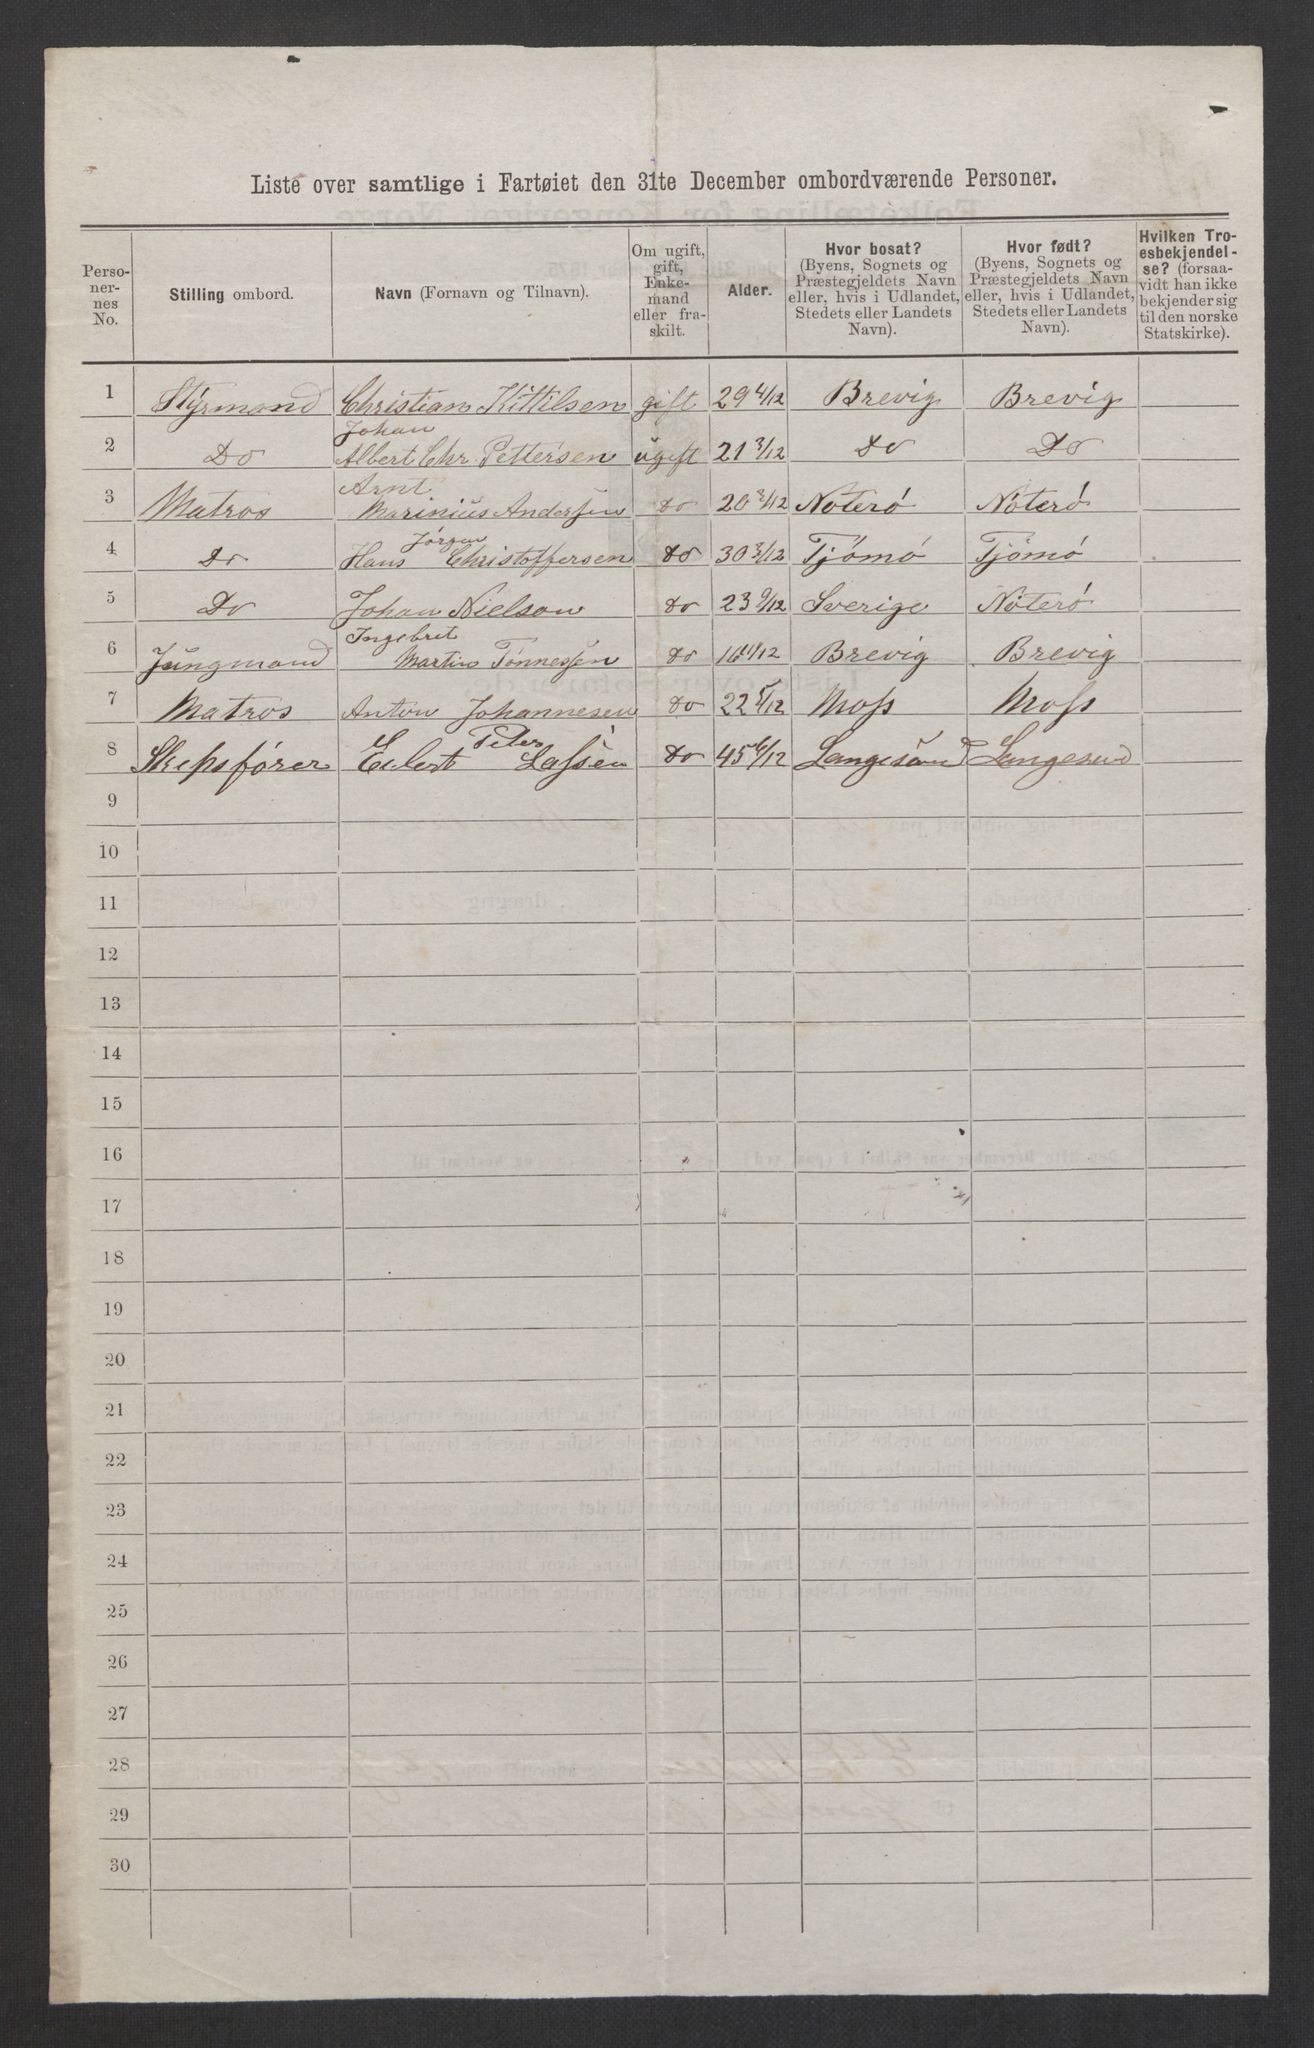 Liste over samtlige i Fartøiet den 31te December ombordværende Personer.
Perso-
ner-
nes
No.
Stilling ombord.
Navn (Fornavn og Tilnavn).
Om ugift,
gift,
Enke-
mand
eller fra-
skilt.
Alder.
Hvor bosat?
(Byens, Sognets og
Præstegjeldets Navn
eller, hvis i Udlandet,
Stedets eller Landets
Navn).
Hvor født?
(Byens, Sognets og
Præstegjeldets Navn
eller, hvis i Udlandet,
Stedets eller Landets
Navn).
Hvilken Tro-
esbekjendel-
se? (forsaa-
vidt han ikke
bekjender sig
til den norske
Statskirke).
1 Styrmand Christian Kittilsen gift 29 4/12 Brevig Brevig
Johan
2 Do Albert Chr. Pettersen ugift 21 3/12 Do Do
Arnt
3 Matros Marinius Andersen do 20 3/12 Nöterö Nöterö
Jørgen
4 Do Hans Christoffersen do 30 3/12 Tjömö Tjömö
5 Do Johan Nielson do 23 9/12 Sverige Nöterö
Ingebret
6 Jungmand Martin Tønnessen do 16 11/12 Brevig Brevig
7 Matros Anton Johannesen do 22 5/12 Moss Moss
Peter
8 Skipsfører Eilert Lassen do 45 6/12 Langesund Langesund
9
10
11
12
13
14
15
16
17
18
19
20
21
22
23
24
25
26
27
28
29
30